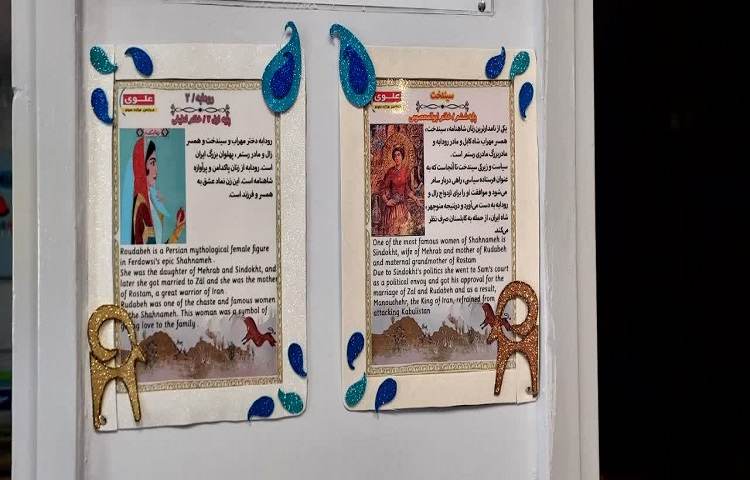 علوی
رودابه / ۲
رودابه دختر مهراب و سیندخت و همسر
زال و مادر رستم، پهلوان بزرگ ایران
است. رودابه از زنان پاکدامن و پرآوازه
شاهنامه است. این زن نماد عشق به
همسر و فرزند است.
Roudabeh is a Persian mythological female figure
in Ferdowsi's epic Shahnameh.
She was the daughter of Mehrab and Sindokht, and
later she got married to Zāl and she was the mother
of Rostam, a great warrior of Iran
Rudabeh was one of the chaste and famous women
the Shahnameh. This woman was a symbol of
love to the family
علوی
سیندخت
پایه ششم / خانم ابوالمعصومی
یکی از نامدارترین زنان شاهنامه، سیندخت،
همسر مهراب شاه کابل و مادر رودابه و
مادربزرگ مادری رستم است.
سیاست و زیرکی سیندخت تا آنجاست که به
عنوان فرستاده سیاسی، راهی دربار سام
می‌شود و موافقت او را برای ازدواج زال و
رودابه به دست می‌آورد و درنتیجه منوچهر،
شاه ایران، از حمله به کابلستان صرف نظر
می‌کند.
One of the most famous women of Shahnameh is
Sindokht, wife of Mehrab and mother of Rudabeh
and maternal grandmother of Rostam
Due to Sindokht's politics she went to Sam's court
as a political envoy and got his approval for the
marriage of Zal and Rudabeh and as a result,
Manouchehr, the King of Iran, refrained from
attacking Kabulistan